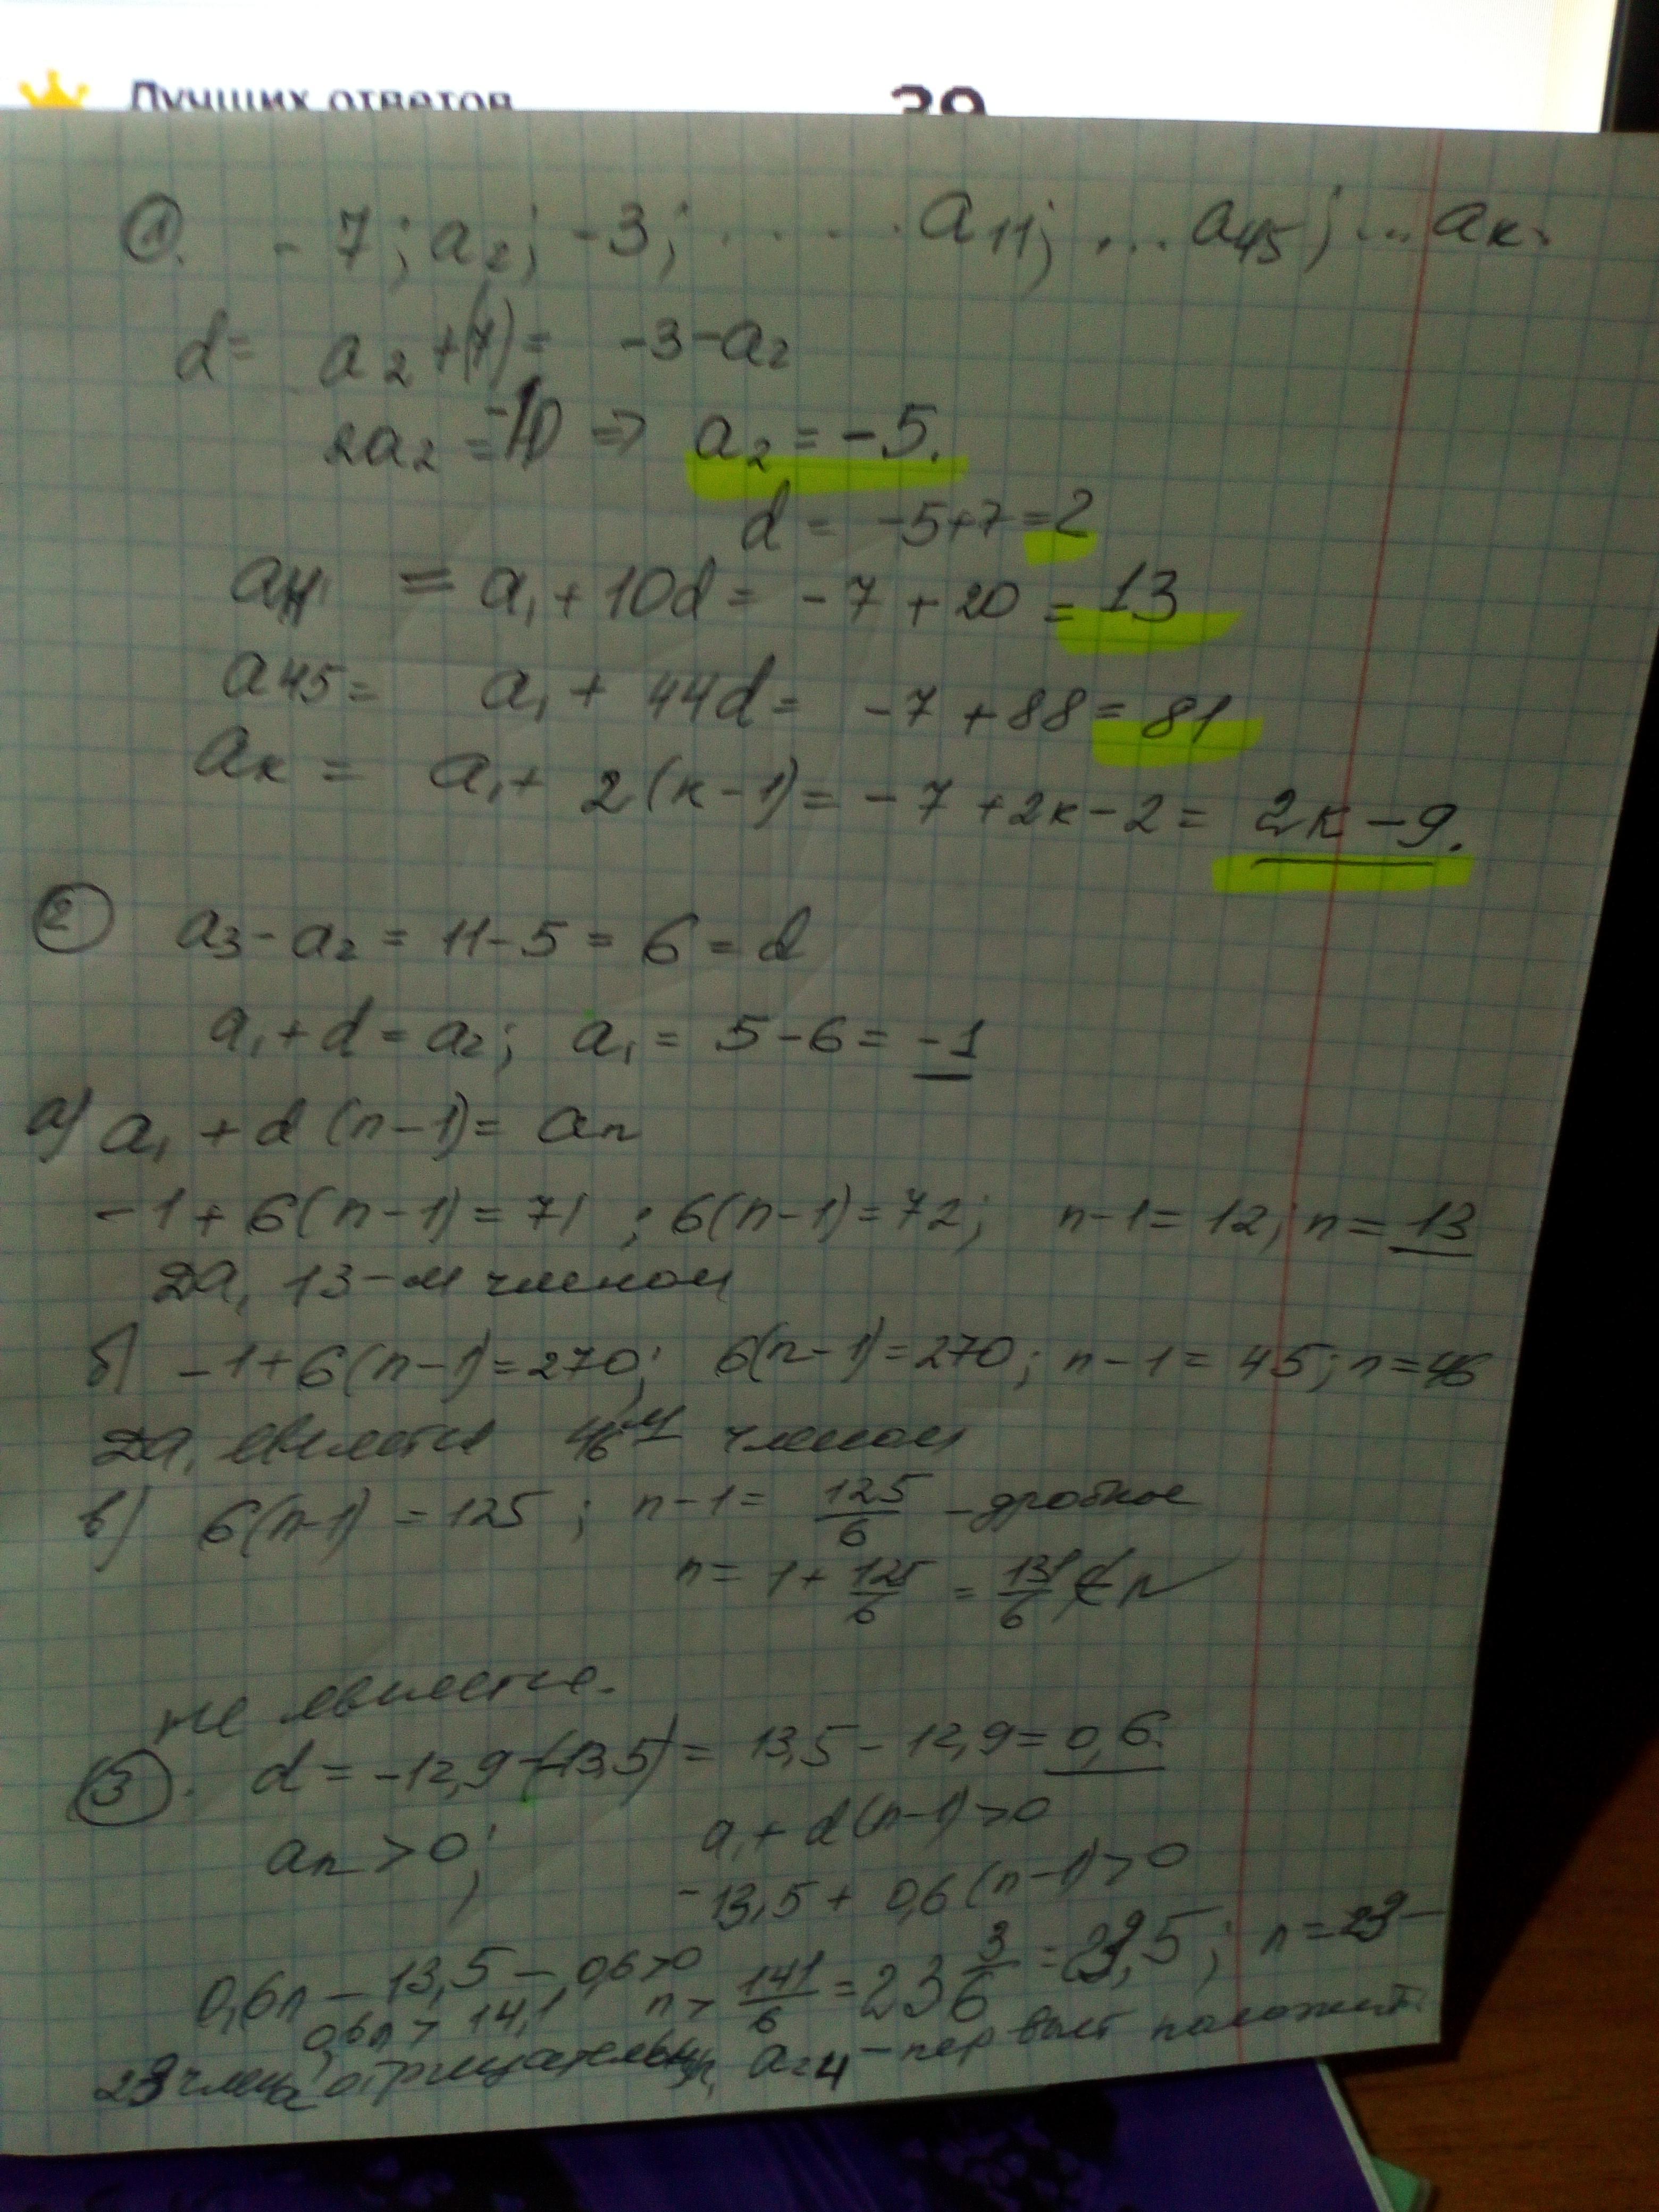 Лучших ответов 39
1. -7; a₂; -3; ..... a₁₁; ... a₄₅; ... aк.
d = a₂+(7) = -3-a₂
2a₂ = -10 => a₂ = -5.
d = -5+7 = 2
a₁₁ = a₁ + 10d = -7 + 20 = 13
a₄₅ = a₁ + 44d = -7 + 88 = 81
aк = a₁ + 2(к-1) = -7 + 2к - 2 = 2к - 9.
2 a₃ - a₂ = 11 - 5 = 6 = d
a₁ + d = a₂; a₁ = 5 - 6 = -1
а) a₁ + d (n-1) = an
-1 + 6(n-1) = 71 ; 6(n-1) = 72; n-1 = 12; n = 13
Да, 13-м членом
б) -1+6(n-1) = 270; 6(n-1) = 270; n-1 = 45; n = 46
Да, является 46м членом
в) 6(n-1) = 125 ; n-1 = 125/6 - дробное
n = 1 + 125/6 = 131/6 ∉ N
не является.
3. d = -12,9-(-13,5) = 13,5 - 12,9 = 0,6.
an > 0; a₁ + d(n-1) > 0
-13,5 + 0,6(n-1) > 0
0,6n - 13,5 - 0,6 > 0
0,6n > 14,1 n > 141/6 = 23 3/6 = 23,5; n = 23 -
23 члена отрицательных, a₂₄ - первый положит.